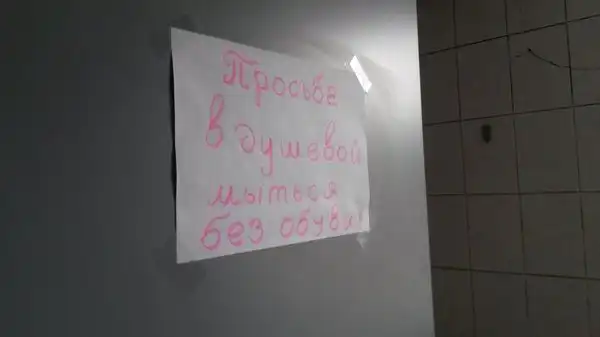 Просьба
в душевой
мыться
без обуви!